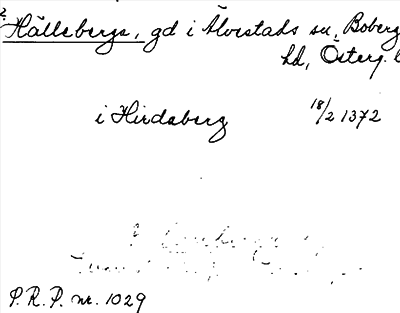 ? Hällebergs, gd i Älvestads sn, Boberg
hd, Österg.
i Hirdaberg 18/2 1372
P.R.P. nr. 1029